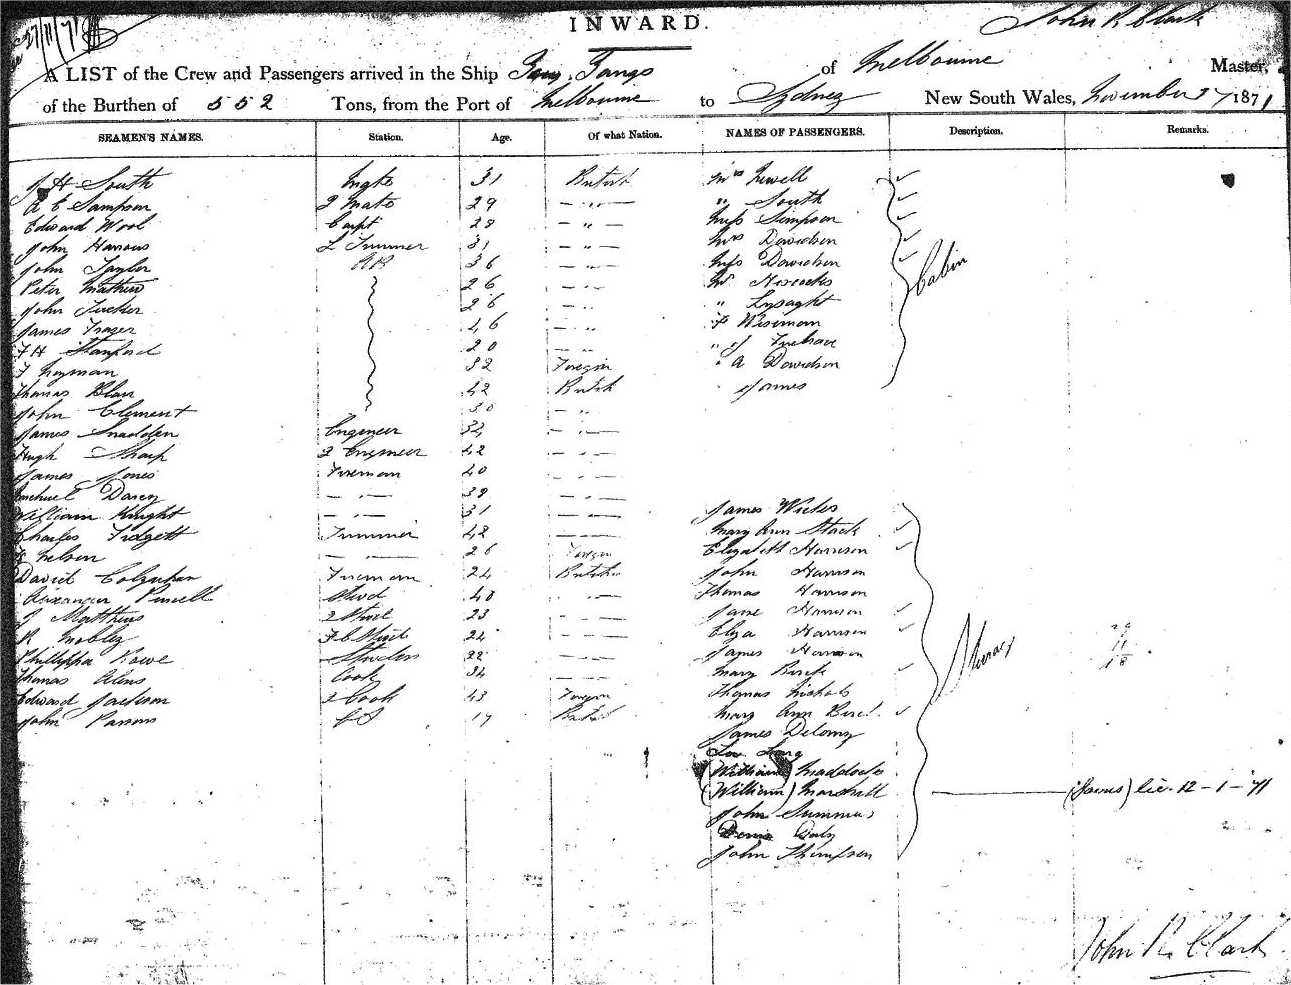 INWARD.
John R Clark
27/11/71
A LIST of the Crew and Passengers arrived in the Ship of Melbourne Master,
of the Burthen of 552 Tons, from the Port of Melbourne to Sydney New South Wales, November 1871
SEAMEN'S NAMES. Station. Age. Of what Nation. NAMES OF PASSENGERS. Description. Remarks.
J H South Mate 31 British Mrs Newell
A E Sampson 2 Mate 29 — " — " South
Edward Wool Carpt 28 — " — Miss Simpson
John 31 — " — Mrs Davidson
John Taylor AB 36 — " Miss Davidson
Peter Mathew 26 — " Mr Hiscocks
John Tucker 26 — " " Lysaght Cabin
James Frazer 46 — " Wiseman
F H Stanford 20 — "
F Heyman 32 Foregn " A Davidson
Thomas Blair 42 British James
John Clement 30 — "
James Snadden Engineer 34
Hugh Sharp 2 Engineer 42
James Jones Fireman 40
Michael Darcy — " — 39
William Knight — " — 31 James
Charles Fidgett Trimmer 42 Mary Ann Stack
Nelson — " — 26 Foregn Elizabeth Harrison
David Colquhan Fireman 24 British John Harrison
Alexander Purcell Stwd 40 Thomas Harrison
J Matthews 2 Stwd 23 Jane Harrison
R Mobley F C Stwd 24 Eliza Harrison
Phillippa Rowe 22 James Harrison Steerage
Thomas Cook 34 Mary
Edward Jackson 2 Cook 43 Foregn Thomas Nichols
John Parsons 17 British Mary Ann
James Delany
(William) Maddocks
(William) Marshall (James) lic. 12-1-71
John Summers
Daly
John Thompson
John R. Clark